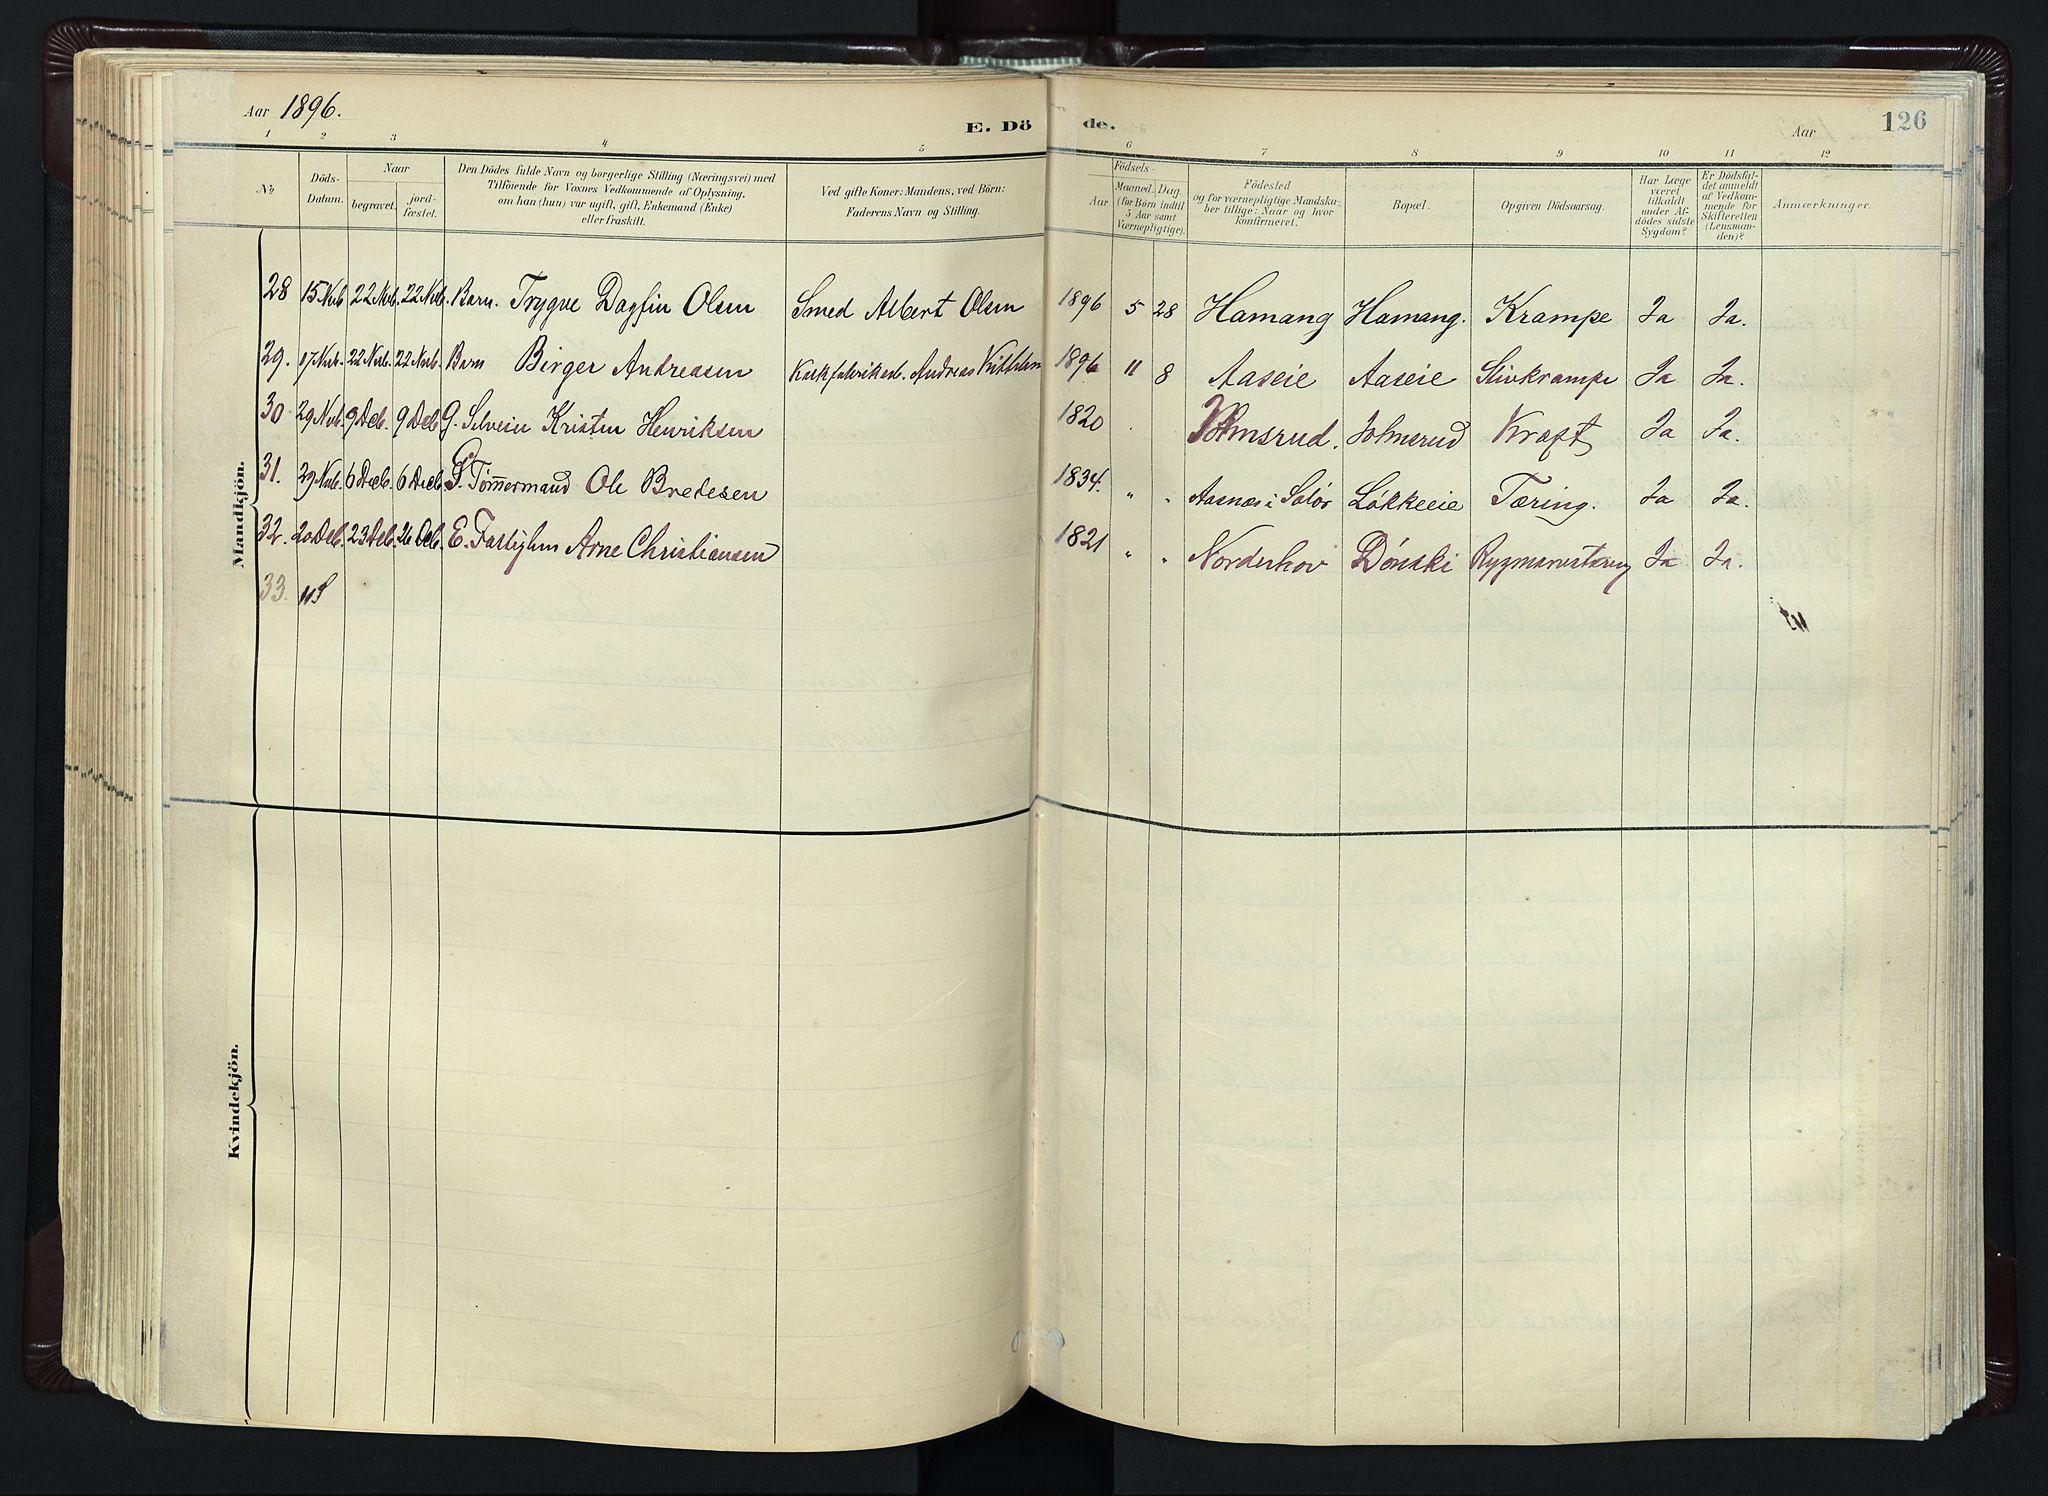 Aar 1896.
E. Döde.
Aar
126
1 2 3 4 5 6 7 8 9 10 11 12
No
Döds-Datum.
Naar
begravet.
jordfæstet.
Den Dödes fulde Navn og borgerlige Stilling (Næringsvei) med
Tilföiende for Voxnes Vedkommende af Oplysning,
om han (hun) var ugift, gift, Enkemand (Enke)
eller fraskilt.
Ved gifte Koner: Mandens, ved Börn:
Faderens Navn og Stilling.
Födsels-
Aar
Maaned. Dag.
(for Börn indtil
5 Aar samt
Værnepligtige).
Födested
og for værnepligtige Mandskaber tillige: Naar og hvor
konfirmeret.
Bopæl.
Opgiven Dödsaarsag.
Har Læge
været
tilkaldt
under Afdödes sidste
Sygdom?
Er Dödsfaldet anmeldt
af Vedkommende for
Skifteretten
(Lensmanden)?
Anmærkninger.
Mandkjön.
28 15 Nvb 22 Nvb. 22 Nvb. Barn. Trygve Dagfin Olsen Smed Albert Olsen 1896 5 28 Hamang Hamang. Krampe Ja Ja.
29. 17 Nvb. 22 Nvb. 22 Nvb. Barn Birger Andreasen Andreas 1896 11 8 Aaseie Aaseie Stivkrampe Ja Ja.
30 29 Nvb. 9 Deb. 9 Deb G. Selveier Kristen Henriksen 1820 Johnsrud. Johnsrud Kræft Ja Ja.
31. 29 Nvb. 6 Deb. 6 Deb G. Tømmermand Ole Bredesen 1834. " " Aasnæs i Solør Løkkeeie Tæring. Ja Ja.
32. 20 Deb. 23 Deb. 26 Deb. E. Arne Christiansen 1821 " " Norderhov Dønski Rygmarvstæring Ja Ja.
33.
Kvindekjön.